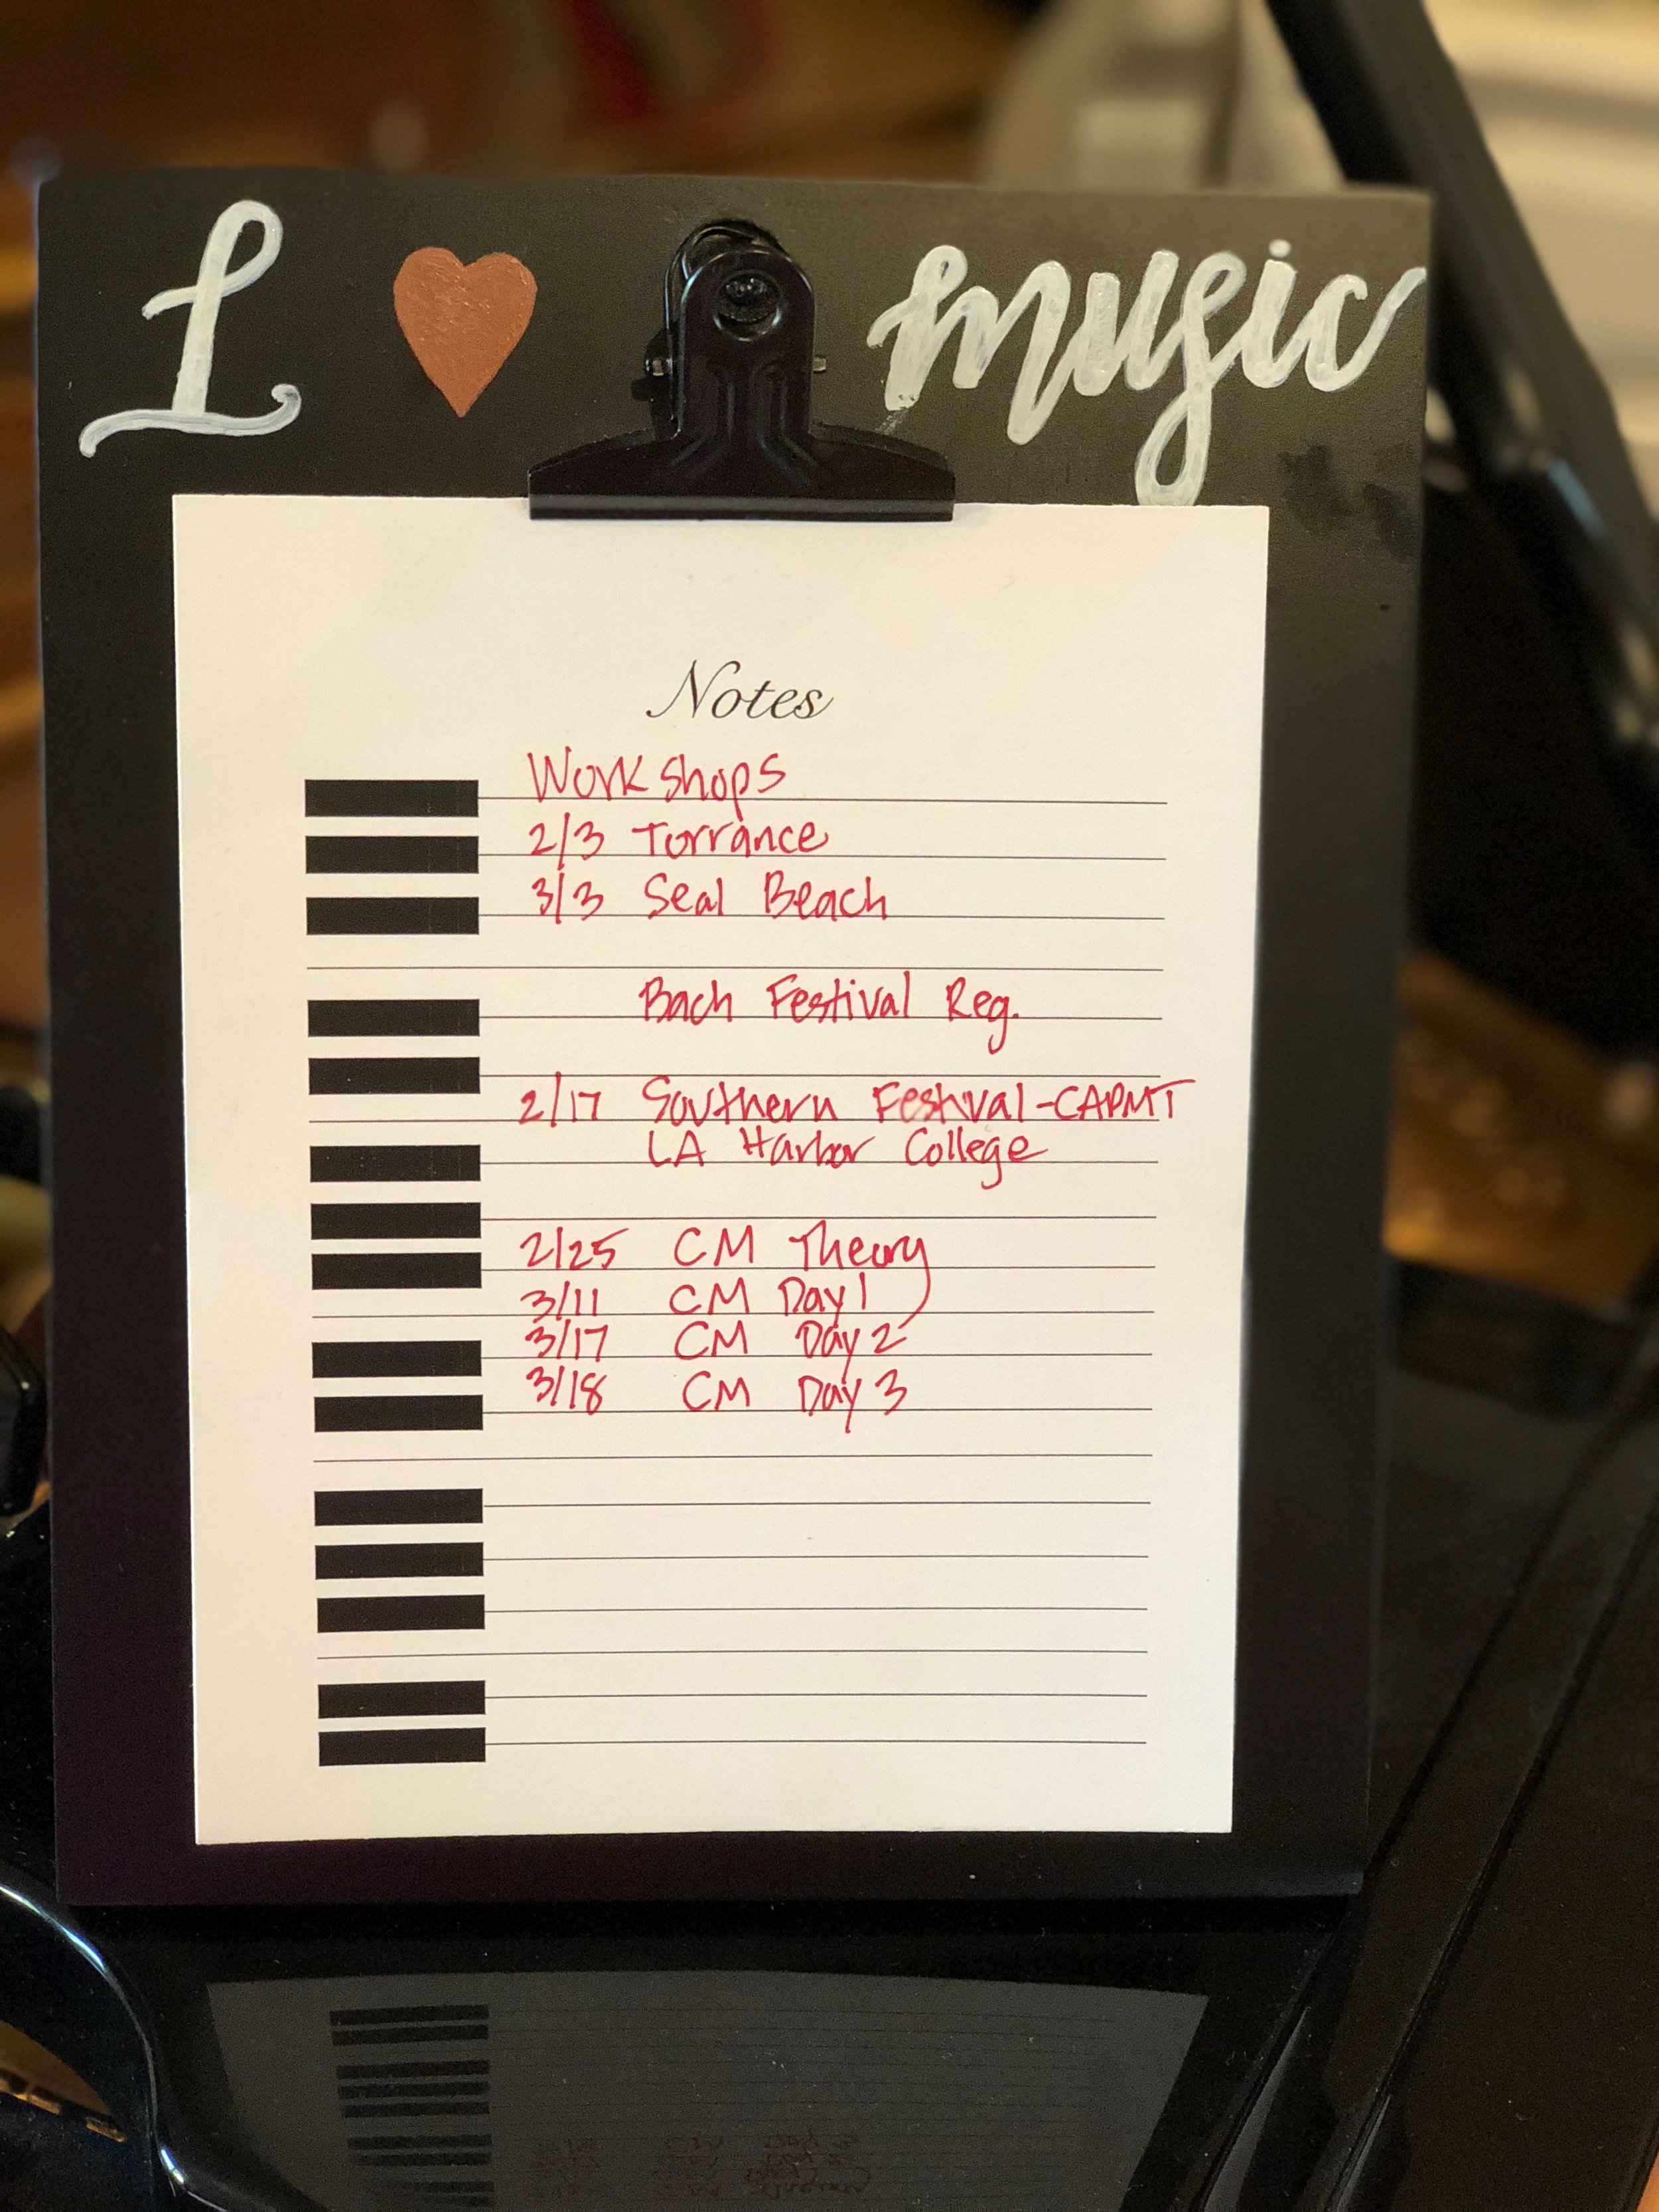 I ♥ music
Notes
Workshops
2/3 Torrance
3/3 Seal Beach
Bach Festival Reg.
2/17 Southern Festival-CAPMT
LA Harbor College
2/25 CM Theory
3/11 CM Day 1
3/17 CM Day 2
3/18 CM Day 3